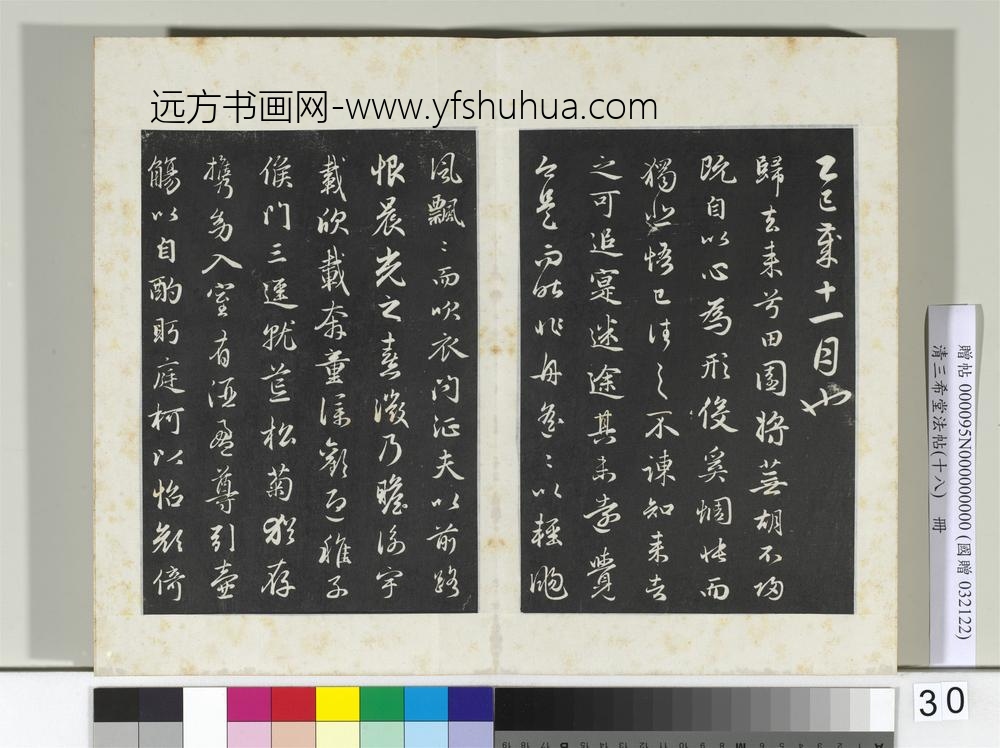 远方书画网-www.yfshuhua.com
乙巳歲十一月也
歸去来兮田園将蕪胡不歸
既自以心為形役奚惆悵而
獨悲悟已往之不諫知来者
之可追寔迷途其未遠覺
今是而昨非舟遥〻以輕颺
風飄〻而吹衣问征夫以前路
恨晨光之熹微乃瞻衡宇
載欣載奔童僕歡迎稚子
候门三逕就荒松菊猶存
携幼入室有酒盈尊引壺
觴以自酌眄庭柯以怡顔倚
贈帖 000095N000000000 (國贈 032122)
清三希堂法帖(十八) 冊
30